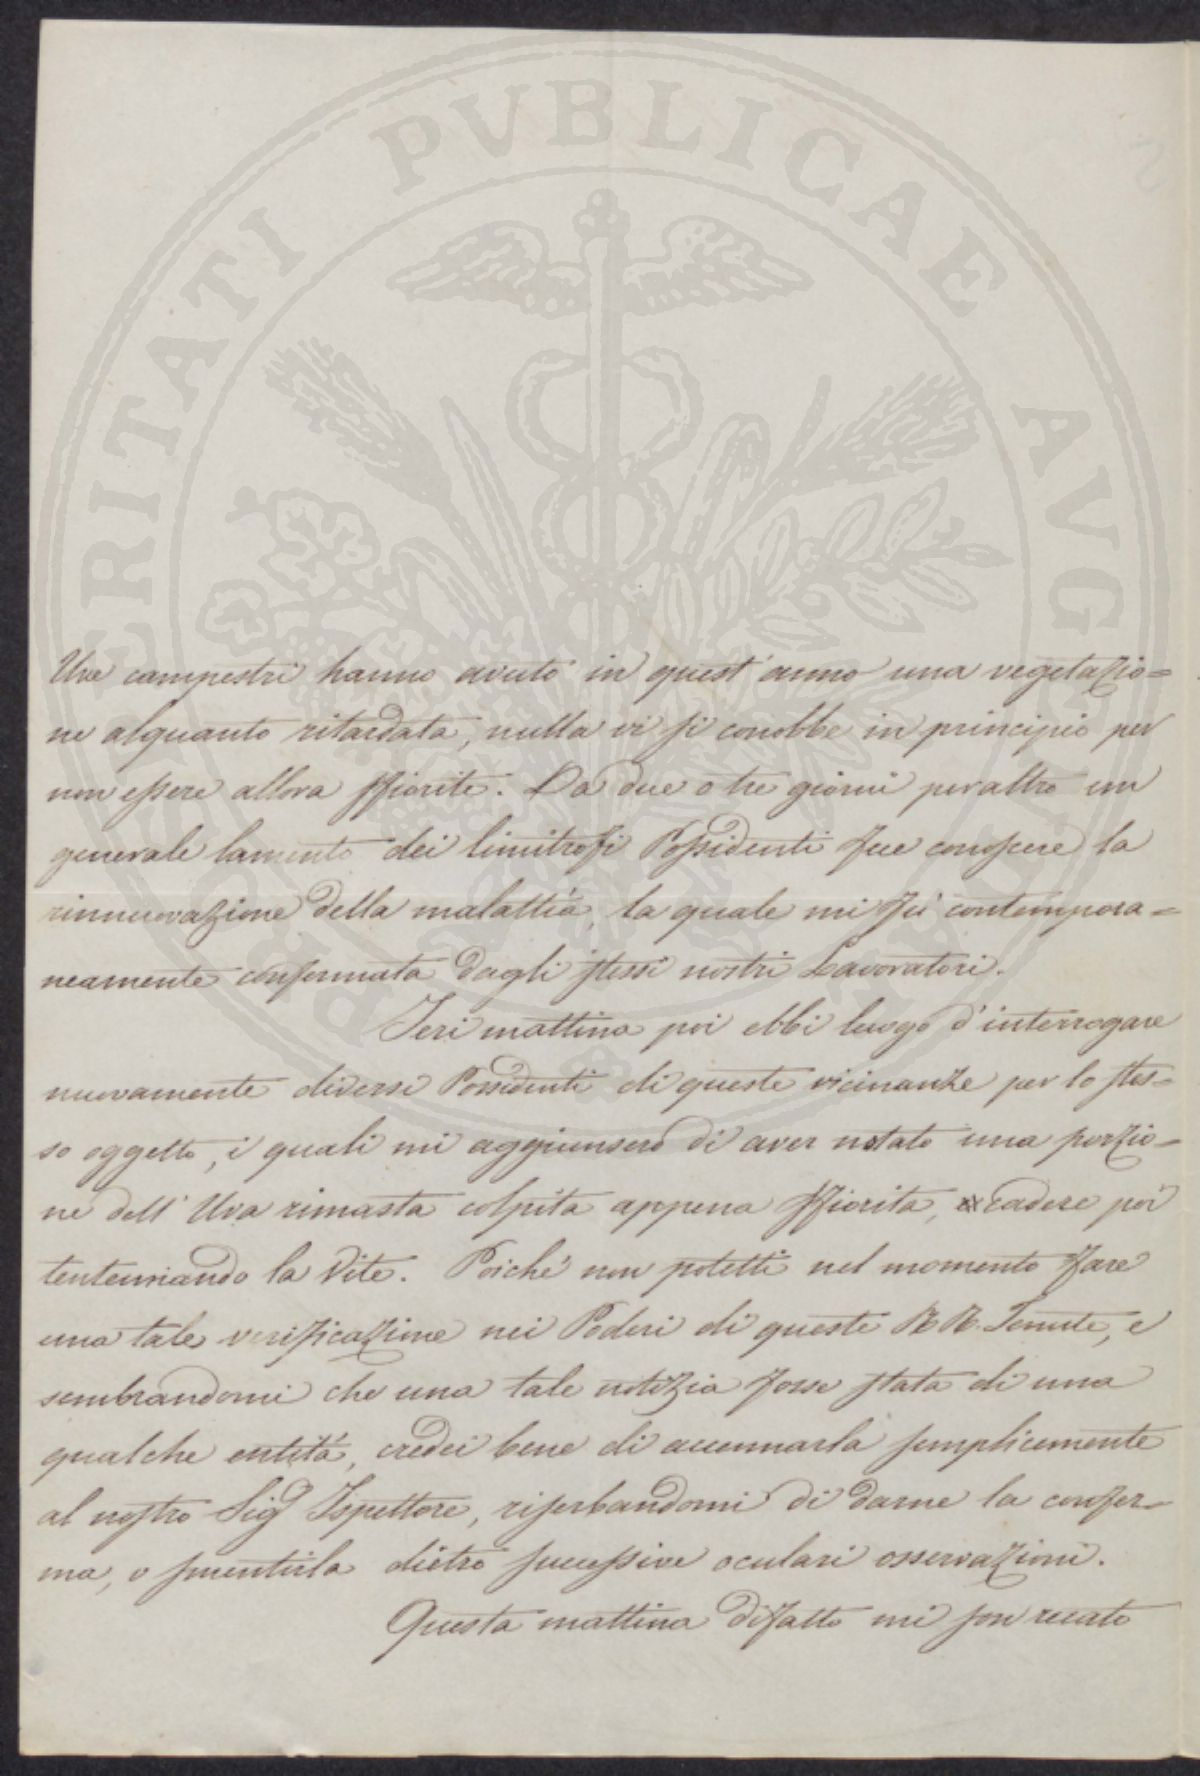 PROSPERITATI PVBLICAE AVGENDAE
Uve campestri hanno avuto in quest'anno una vegetazio=
ne alquanto ritardata, nulla vi si conobbe in principio per
non essere allora sfiorite. Da due o tre giorni peraltro un
generale lamento dei limitrofi Possidenti fece conoscere la
rinnuovazione della malattia, la quale mi fu contempora=
neamente confermata dagli stessi nostri Lavoratori.
Ieri mattina poi ebbi luogo d'interrogare
nuovamente diversi Possidenti di queste vicinanze per lo stes=
so oggetto, i quali mi aggiunsero di aver notato una porzio=
ne dell'Uva rimasta colpita appena sfiorita, cadere poi
tentennando la Vite. Poiché non potetti nel momento fare
una tale verificazione nei Poderi di queste RR. Tenute, e
sembrandomi che una tale notizia fosse stata di una
qualche entità, credei bene di accennarla semplicemente
al nostro Sig.r Ispettore, riserbandomi di darne la confer=
ma, o smentirla dietro successive oculari osservazioni.
Questa mattina difatto mi son recato